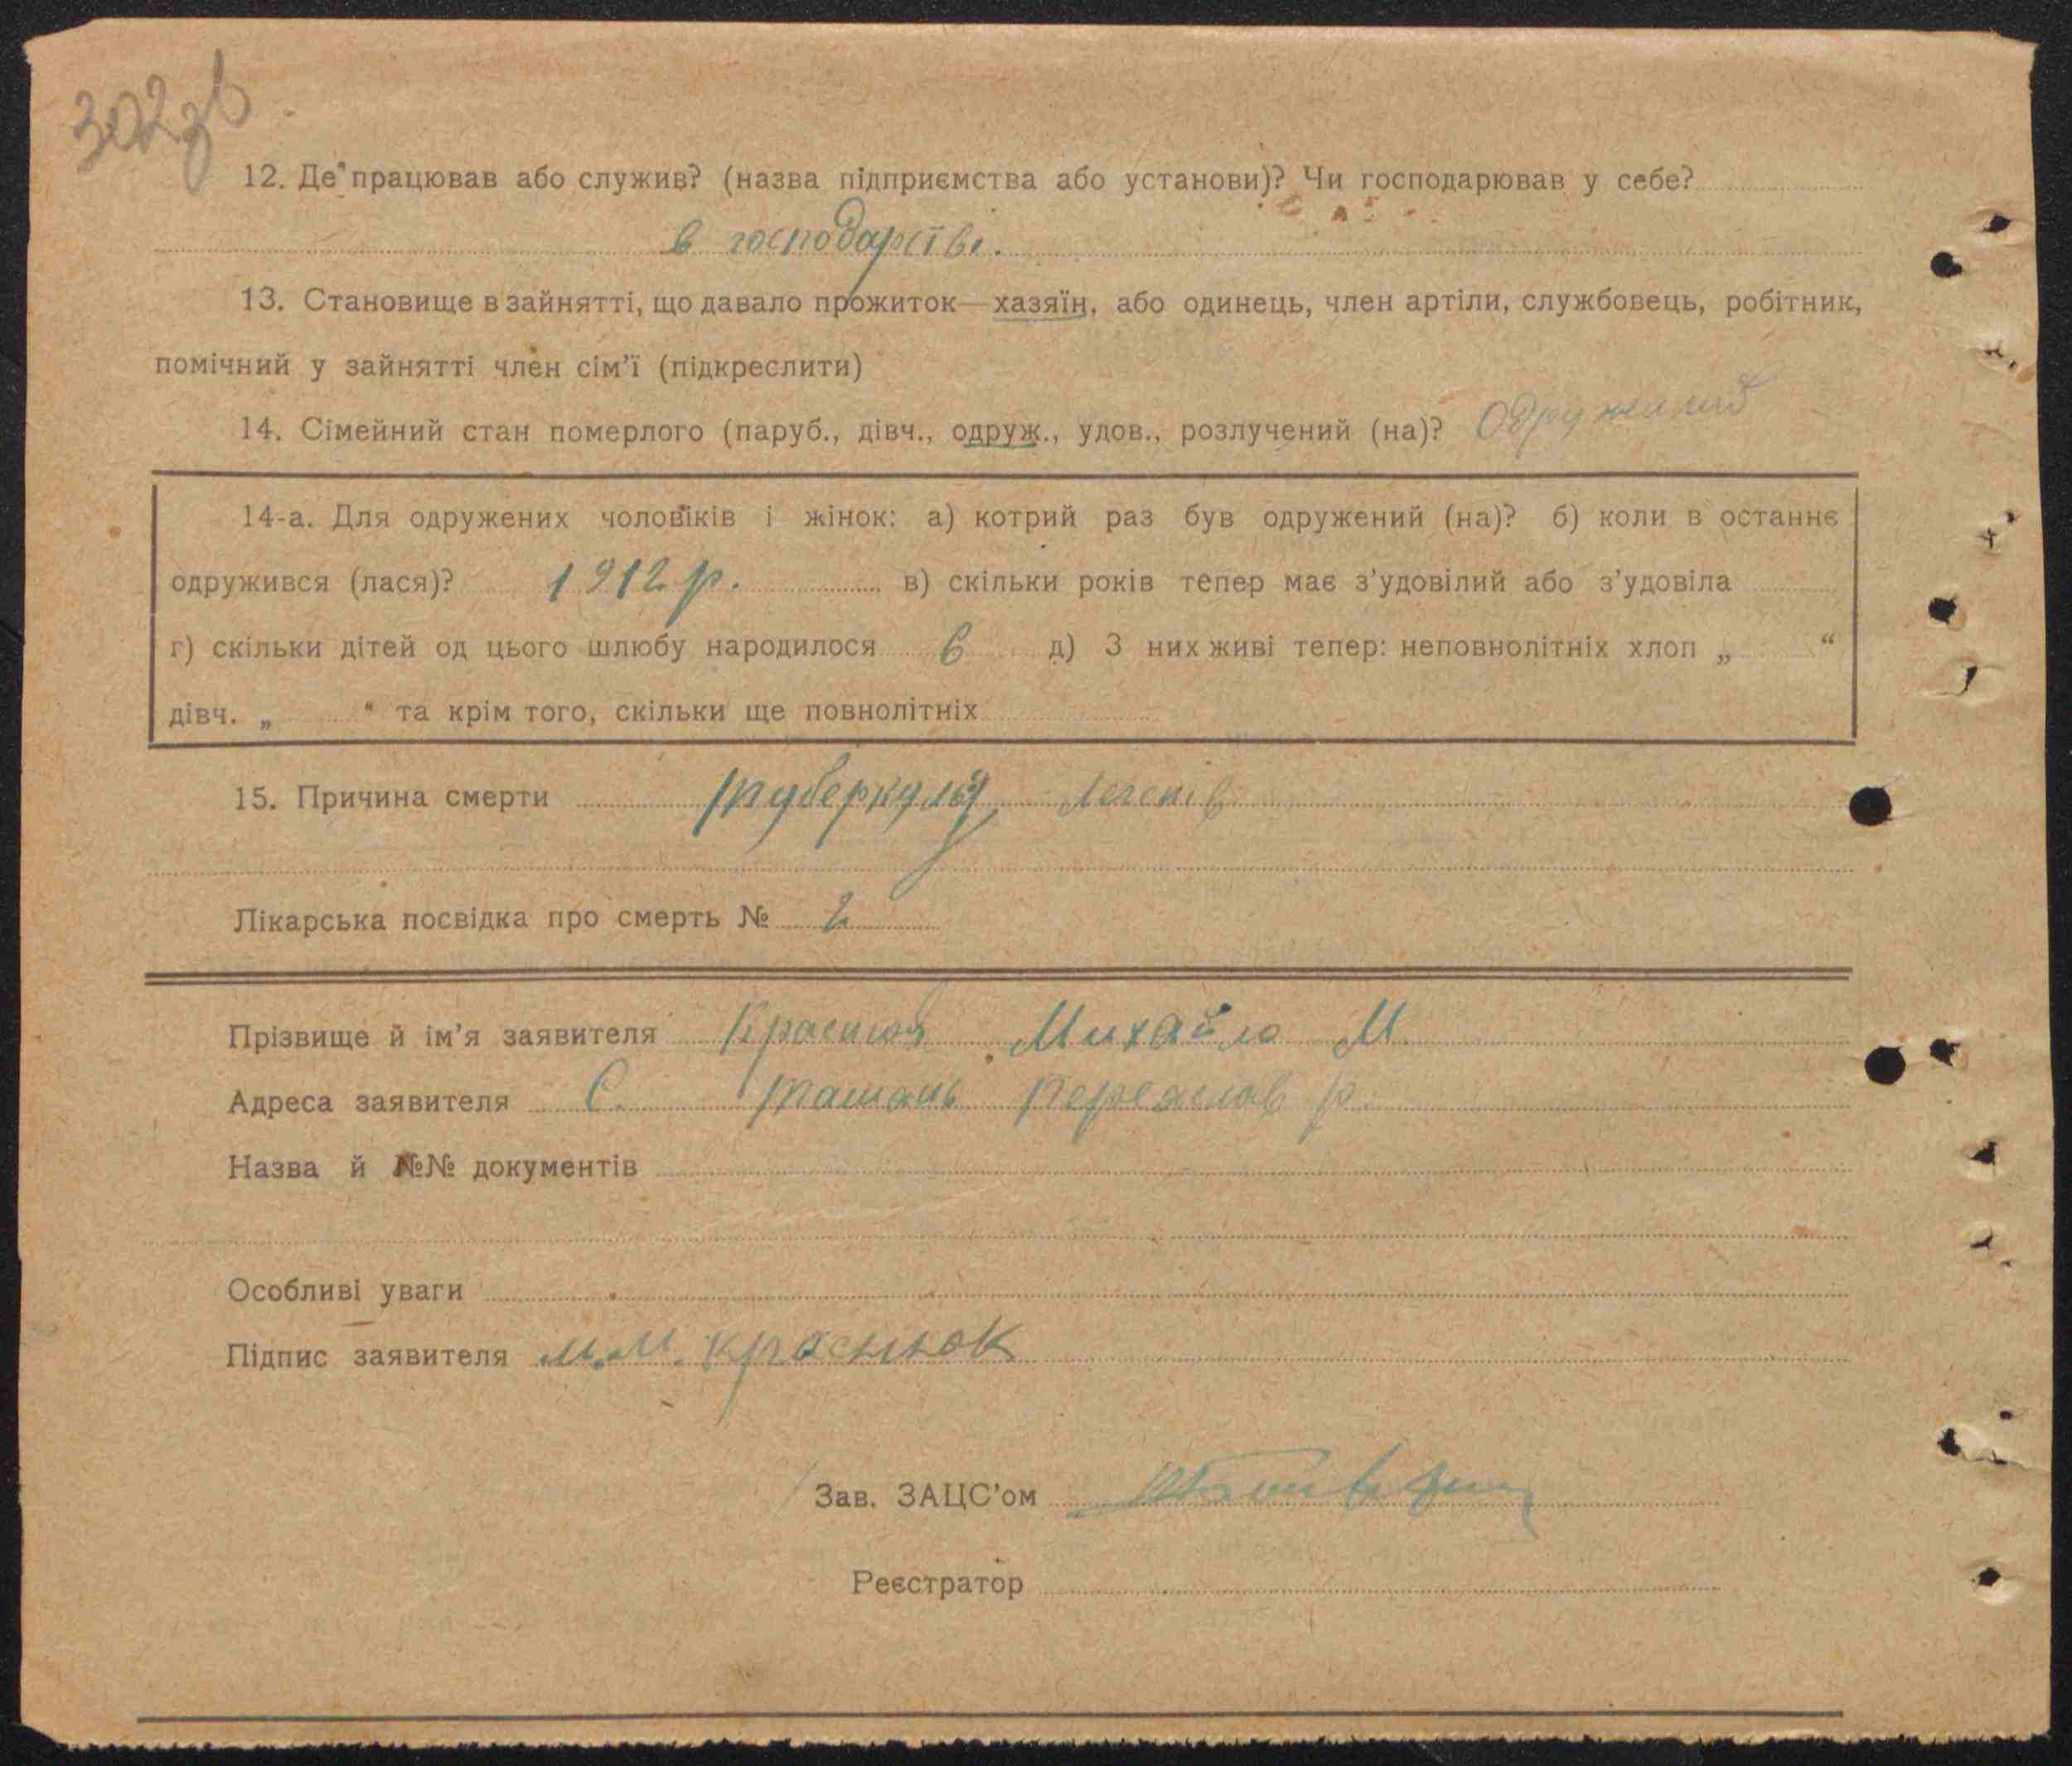 302зв
12. Де працював або служив? (назва підприємства або установи)? Чи господарював у себе?
в господарстві.
13. Становище в зайнятті, що давало прожиток—хазяїн, або одинець, член артіли, службовець, робітник,
помічний у зайнятті член сім’ї (підкреслити)
14. Сімейний стан померлого (паруб., дівч., одруж., удов., розлучений (на)? Одружений
14-а. Для одружених чоловіків і жінок: а) котрий раз був одружений (на)? б) коли в останнє
одружився (лася)? 1912 р. в) скільки років тепер має з’удовілий або з’удовіла
г) скільки дітей од цього шлюбу народилося 6 д) З них живі тепер: неповнолітніх хлоп „ “
дівч. „ “ та крім того, скільки ще повнолітніх
15. Причина смерти туберкульоз легенів
Лікарська посвідка про смерть № 2
Прізвище й ім’я заявителя Краснюк Михайло М.
Адреса заявителя С. Ташань Переяслав р.
Назва й №№ документів
Особливі уваги
Підпис заявителя М.М. Краснюк
Зав. ЗАЦС’ом
Реєстратор